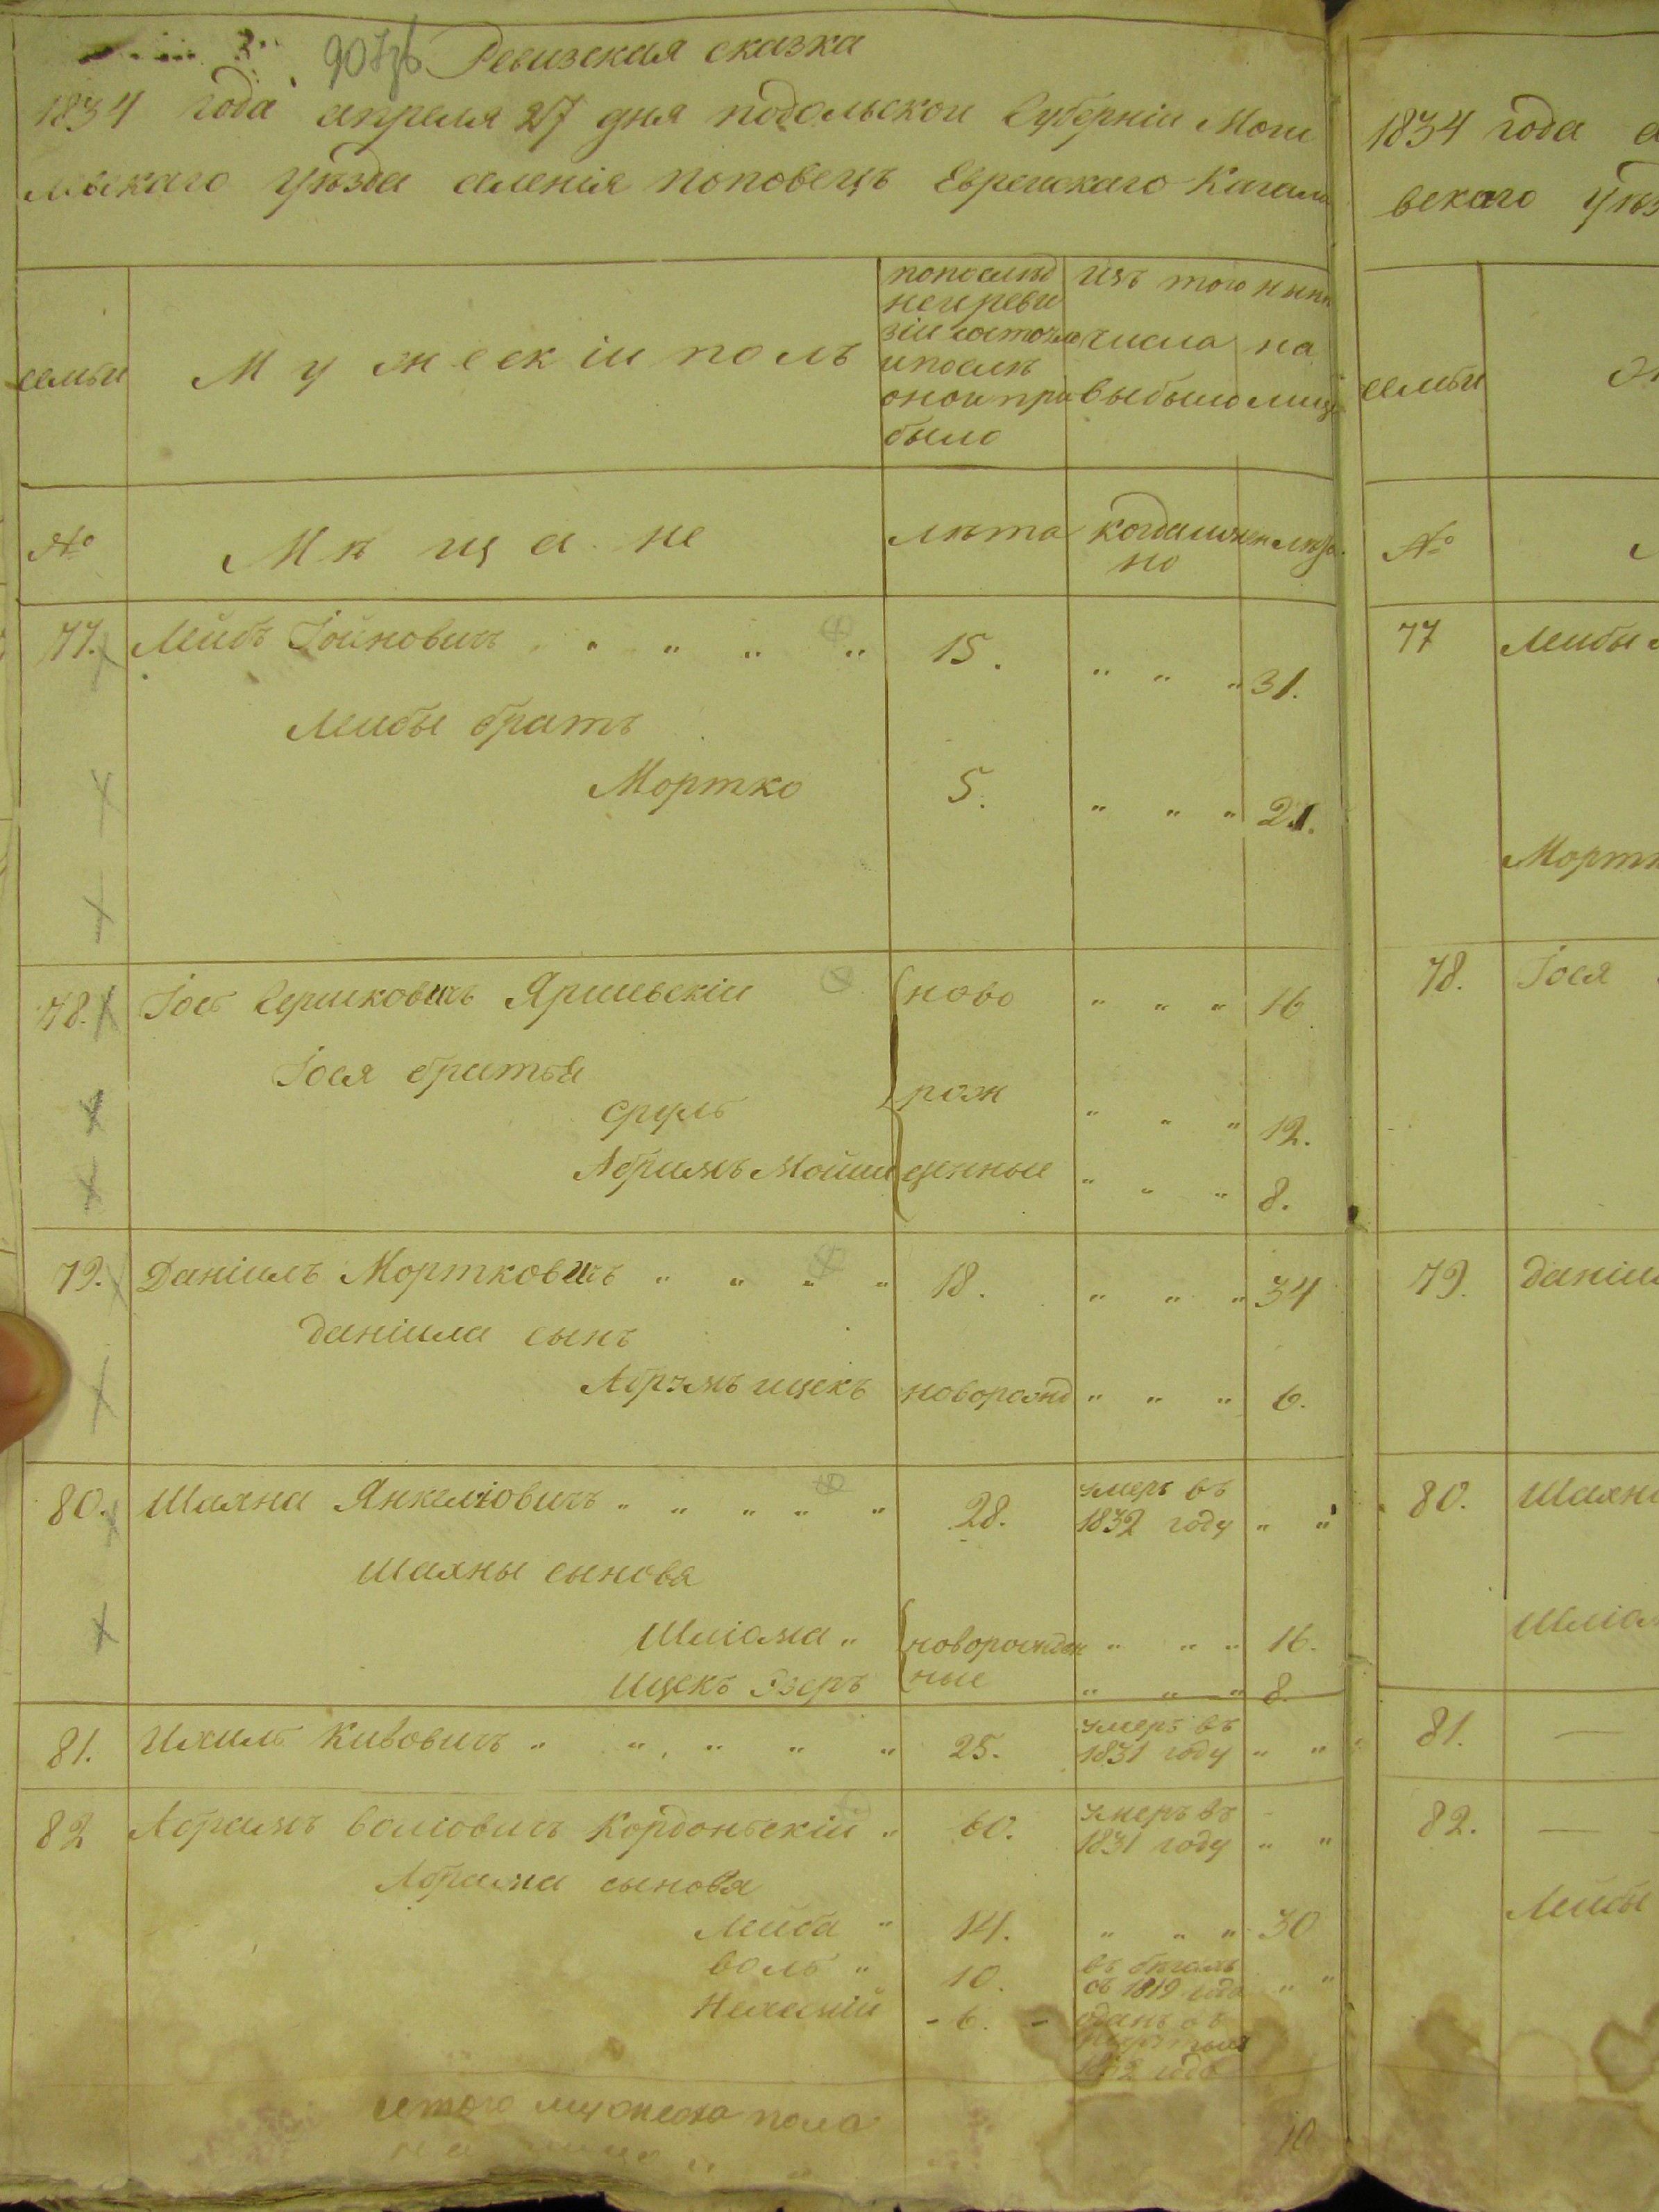 Ревизская сказка
1834 года апреля 27 дня подольской Губерніи Моги
левскаго Уѣзда селенія поповецъ Еврейскаго Кагала
семьи
Мужескій полъ
попослѣд
ней реви
зіи состояло
и послѣ
оной при
было
изъ того
числа
выбыло
нынѣ
на
лицо
№
Мѣщане
лѣта
когда имен
но
лѣта
77. Лейбъ Іойновичъ " " " " 15. " " " 31.
Лейбы братъ
Мортко 5. " " " 21.
78. Іось Гершковичъ Яришевскій ново " " " 16
Іося братья
Сруль рож " " " 12.
Абрамъ Мойше денные " " " 8.
79. Даніилъ Мортковичъ " " " " 18. " " " 34
Даніила сынъ
Абрамъ ицекъ новорожд " " " 6.
80. Шахна Янкеліовичъ " " " " " 28. умеръ въ
1832 году " "
Шахны сыновя
Шліома " новорожден " " " 16.
Ицекъ Эзеръ ные " " " 8.
81. Ихиль Кивовичъ " " " " " 25. умеръ въ
1831 году " "
82 Абрамъ Волковичъ Кордонскій " 60. умеръ въ
1831 году " "
Абрама сыновя
Лейба " 14. " " " 30
Воль " 10. въ бѣгахъ
съ 1819 года " "
Нехемій - 6. - отданъ въ
рекруты
1832 года
итого мужеска пола
10
1834 года
вскаго Уѣз
семьи
№
77 Лейбы
Мортк
78. Іося
79. Даніил
80. Шахн
Шліом
81. —
82. —
Лейбы